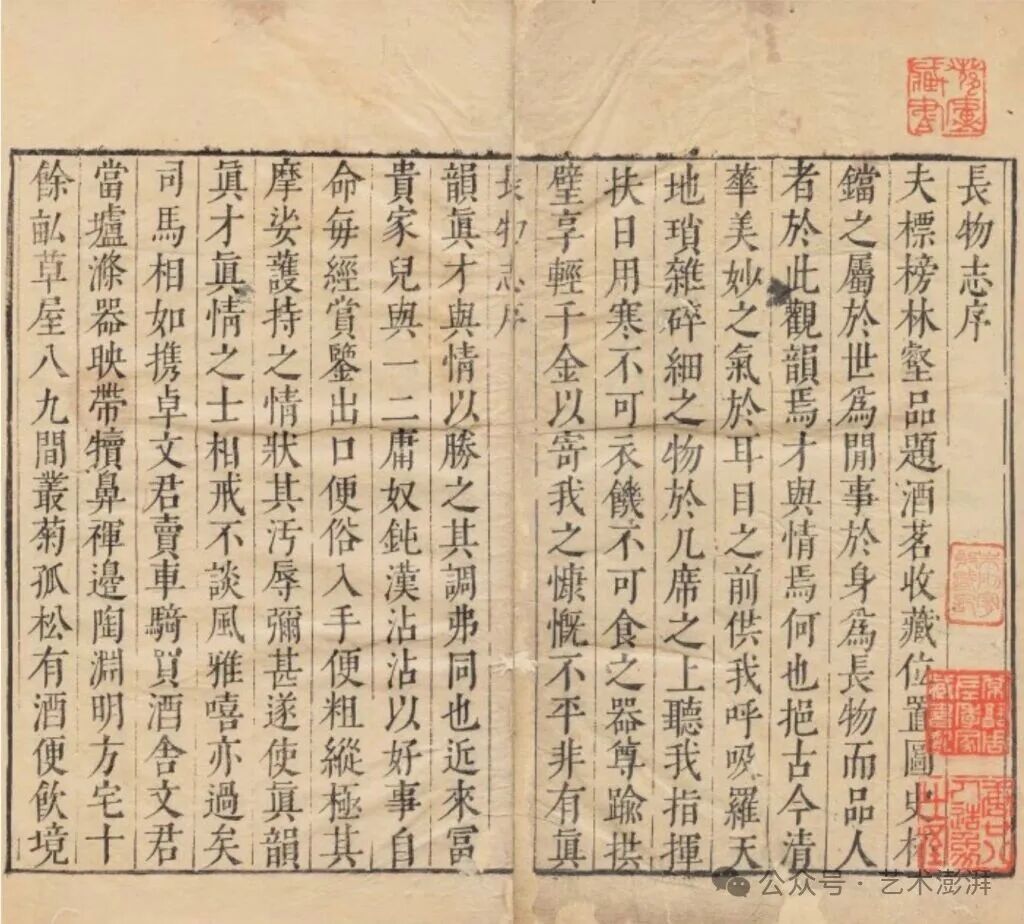 長物志序
夫標榜林壑品題酒茗收藏位置圖史杯
鐺之屬於世爲閒事於身爲長物而品人
者於此觀韻焉才與情焉何也挹古今清
華美妙之氣於耳目之前供我呼吸羅天
地瑣雜碎細之物於几席之上聽我指揮
扶日用寒不可衣饑不可食之器尊踰拱
璧享輕千金以寄我之慷慨不平非有眞
長物志序
韻眞才與情以勝之其調弗同也近來富
貴家兒與一二庸奴鈍漢沾沾以好事自
命每經賞鑒出口便俗入手便粗縱極其
摩娑護持之情狀其汚辱彌甚遂使眞韻
眞才眞情之士相戒不談風雅嘻亦過矣
司馬相如携卓文君賣車騎買酒舍文君
當壚滌器映帶犢鼻褌邊陶淵明方宅十
餘畝草屋八九間叢菊孤松有酒便飲境
公众号·艺术澎湃